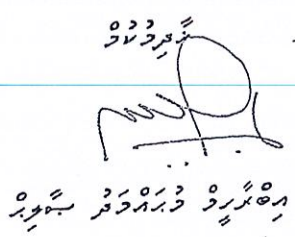 ޚާދިމުކުމް
އިބްރާހީމް މުޙައްމަދު ޞާލިޙް